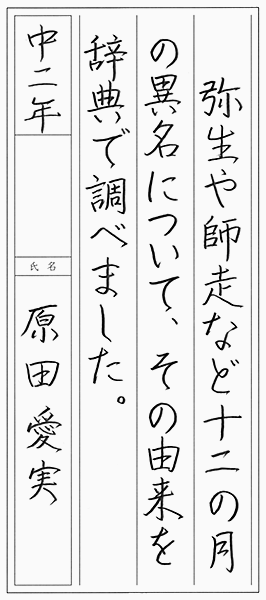 弥生や師走など十二の月
の異名について、その由来を
辞典で調べました。
中二年
氏名
原田愛実